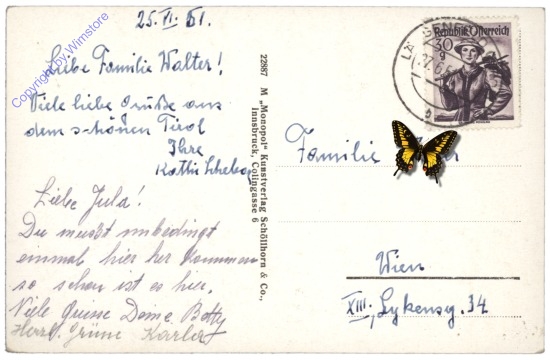 25. VI. 51.
Liebe Familie Walter!
Viele liebe Grüße aus
dem schönen Tirol
Ihre
Kathie
Liebe Jula!
Du musst unbedingt
einmal hier her kommen
so schön ist es hier.
Viele Grüsse Deine Betty
Grüne Karla
22887 M „Monopol" Kunstverlag Schöllhorn & Co.,
Innsbruck, Colingasse 6
Republik Österreich
30
g
Familie
Wien
XIII., Lykeneg. 34
Copyright by Wimstore